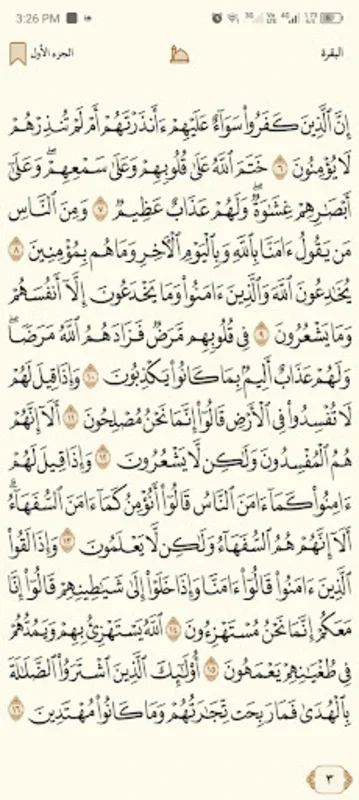 3:26 PM
البقرة
الجزء الأول
إِنَّ ٱلَّذِينَ كَفَرُوا۟ سَوَآءٌ عَلَيْهِمْ ءَأَنذَرْتَهُمْ أَمْ لَمْ تُنذِرْهُمْ
لَا يُؤْمِنُونَ ٦ خَتَمَ ٱللَّهُ عَلَىٰ قُلُوبِهِمْ وَعَلَىٰ سَمْعِهِمْ ۖ وَعَلَىٰٓ
أَبْصَـٰرِهِمْ غِشَـٰوَةٌ ۖ وَلَهُمْ عَذَابٌ عَظِيمٌ ٧ وَمِنَ ٱلنَّاسِ
مَن يَقُولُ ءَامَنَّا بِٱللَّهِ وَبِٱلْيَوْمِ ٱلْـَٔاخِرِ وَمَا هُم بِمُؤْمِنِينَ ٨
يُخَـٰدِعُونَ ٱللَّهَ وَٱلَّذِينَ ءَامَنُوا۟ وَمَا يَخْدَعُونَ إِلَّآ أَنفُسَهُمْ
وَمَا يَشْعُرُونَ ٩ فِى قُلُوبِهِم مَّرَضٌ فَزَادَهُمُ ٱللَّهُ مَرَضًا ۖ
وَلَهُمْ عَذَابٌ أَلِيمٌۢ بِمَا كَانُوا۟ يَكْذِبُونَ ١٠ وَإِذَا قِيلَ لَهُمْ
لَا تُفْسِدُوا۟ فِى ٱلْأَرْضِ قَالُوٓا۟ إِنَّمَا نَحْنُ مُصْلِحُونَ ١١ أَلَآ إِنَّهُمْ
هُمُ ٱلْمُفْسِدُونَ وَلَـٰكِن لَّا يَشْعُرُونَ ١٢ وَإِذَا قِيلَ لَهُمْ
ءَامِنُوا۟ كَمَآ ءَامَنَ ٱلنَّاسُ قَالُوٓا۟ أَنُؤْمِنُ كَمَآ ءَامَنَ ٱلسُّفَهَآءُ ۗ
أَلَآ إِنَّهُمْ هُمُ ٱلسُّفَهَآءُ وَلَـٰكِن لَّا يَعْلَمُونَ ١٣ وَإِذَا لَقُوا۟
ٱلَّذِينَ ءَامَنُوا۟ قَالُوٓا۟ ءَامَنَّا وَإِذَا خَلَوْا۟ إِلَىٰ شَيَـٰطِينِهِمْ قَالُوٓا۟ إِنَّا
مَعَكُمْ إِنَّمَا نَحْنُ مُسْتَهْزِءُونَ ١٤ ٱللَّهُ يَسْتَهْزِئُ بِهِمْ وَيَمُدُّهُمْ
فِى طُغْيَـٰنِهِمْ يَعْمَهُونَ ١٥ أُو۟لَـٰٓئِكَ ٱلَّذِينَ ٱشْتَرَوُا۟ ٱلضَّلَـٰلَةَ
بِٱلْهُدَىٰ فَمَا رَبِحَت تِّجَـٰرَتُهُمْ وَمَا كَانُوا۟ مُهْتَدِينَ ١٦
٣